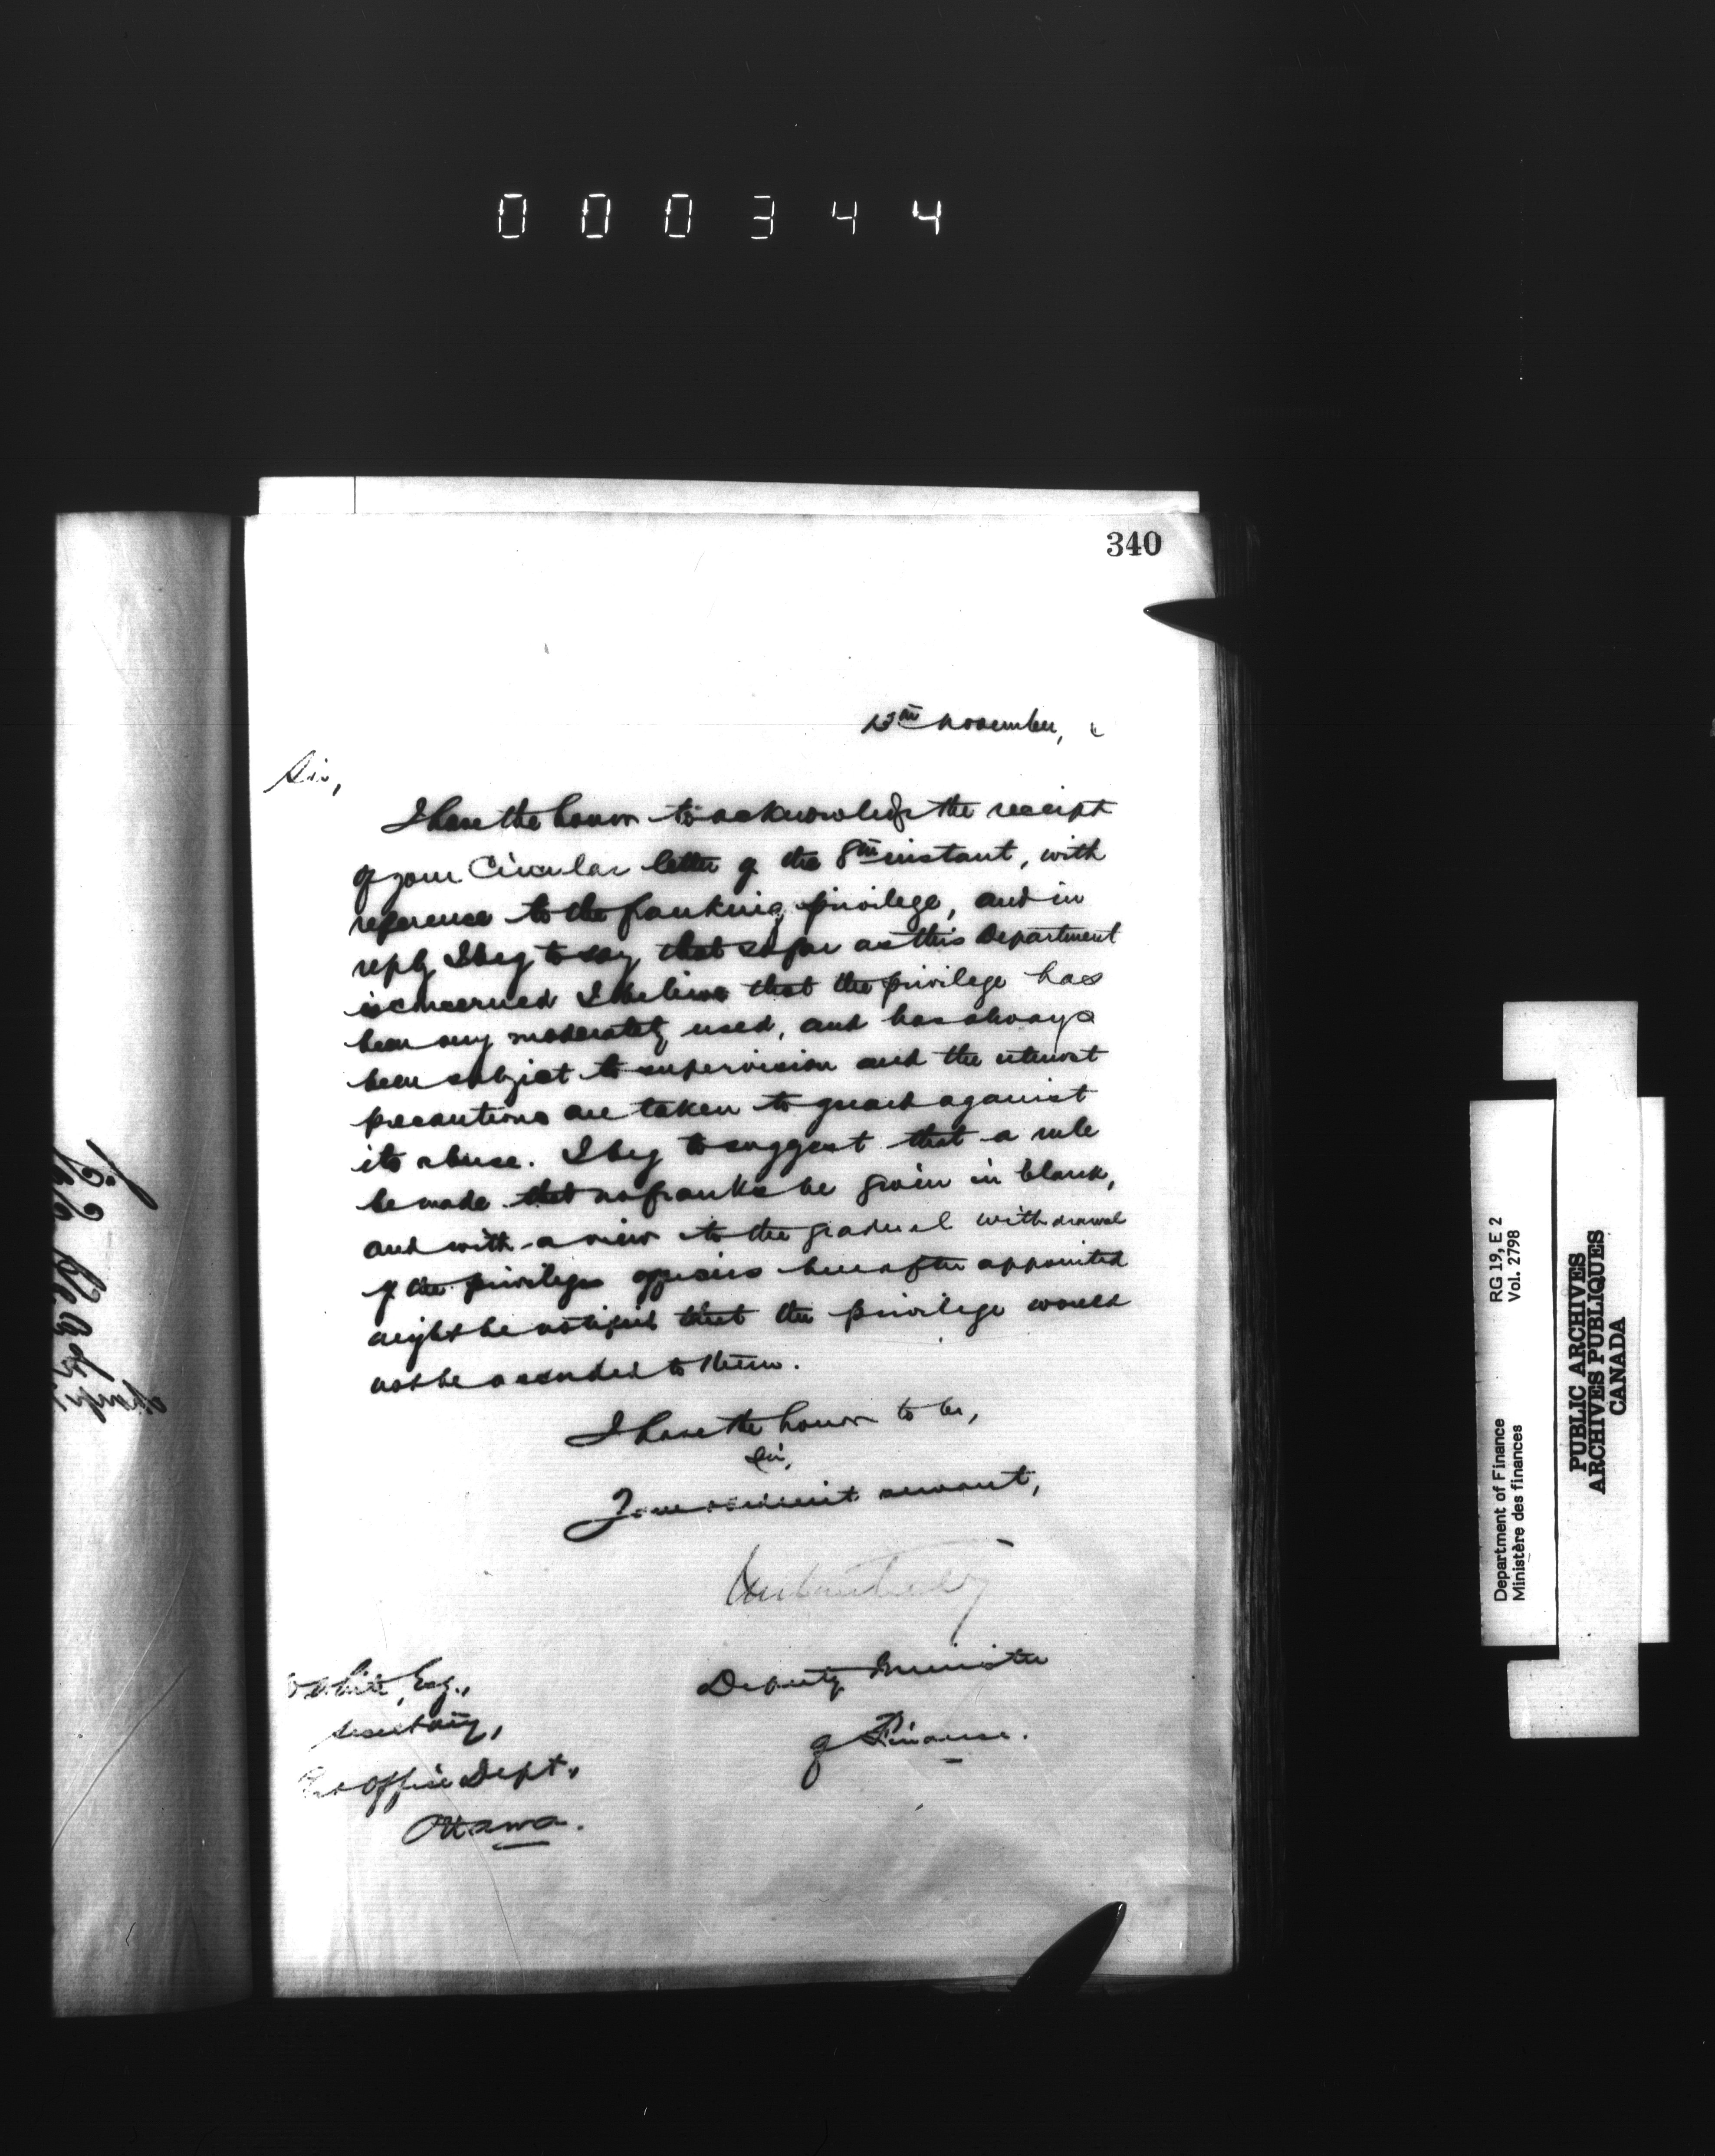 000344
340
13th November,
Sir,
I have the honor to acknowledge the receipt
of your Circular letter of the 8th instant, with
reference to the franking privilege, and in
reply I beg to say that so far as this Department
is concerned I believe that the privilege has
been very moderately used, and has always
been subject to supervision and the utmost
precautions are taken to guard against
its abuse. I beg to suggest that a rule
be made that no franks be given in blank,
and with a view to the gradual withdrawal
of the privilege officers hereafter appointed
might be notified that the privilege would
not be accorded to them.
I have the honor to be,
Sir,
Your obedient servant,
Deputy Minister
of Finance.
White, Esq.,
Secretary,
Office Dept.,
Ottawa.
RG 19, E 2
Vol. 2798
Department of Finance
Ministère des finances
PUBLIC ARCHIVES
ARCHIVES PUBLIQUES
CANADA